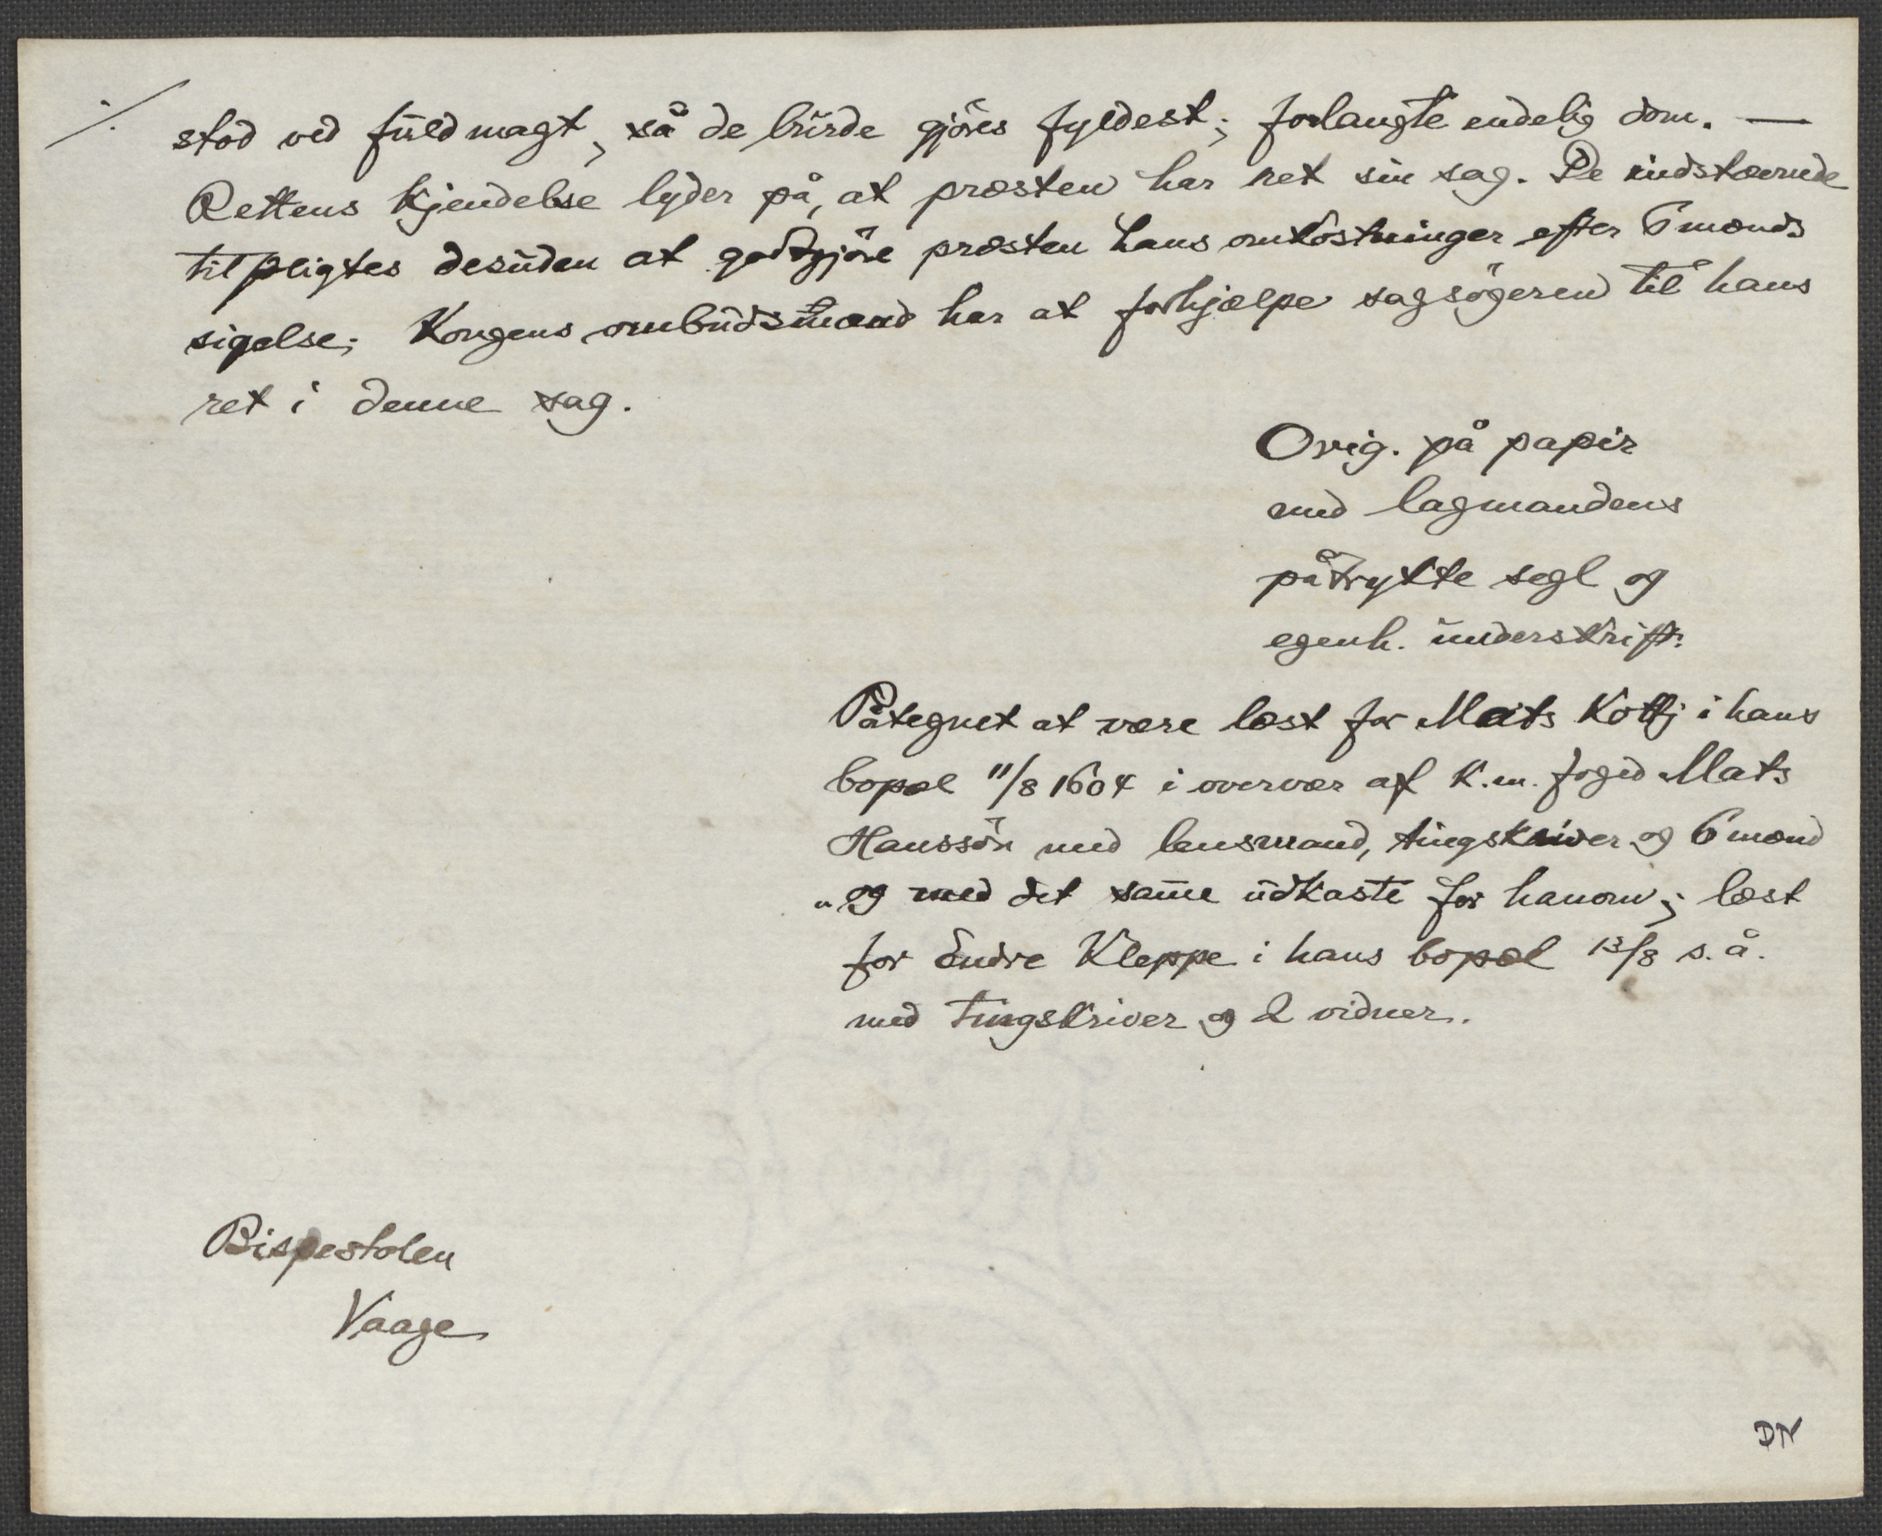 ·/. stod ved fuldmagt, så de burde gjöres fyldest; forlangte endelig dom. —
Rettens kjendelse lyder på, at præsten har ret sin sag. De indstævnede
tilpligtes desuden at godtgjöre præsten hans omkostninger efter 6 mænds
sigelse; Kongens ombudsmænd har at forhjælpe sagsögeren til hans
ret i denne sag.
Orig. på papir
med lagmandens
påtrykte segl og
egenh. underskrift.
Påtegnet at være læst for Mats i hans
bopæl 11/8 1604 i overvær af K.m. foged Mats
Hanssön med lensmand, tingskriver og 6 mænd
„og med det same udkaste for hanom; læst
for Endre Kleppe i hans bopæl 13/8 s. å.
med tingskriver og 2 vidner.
Bispestolen
Vaage
DN